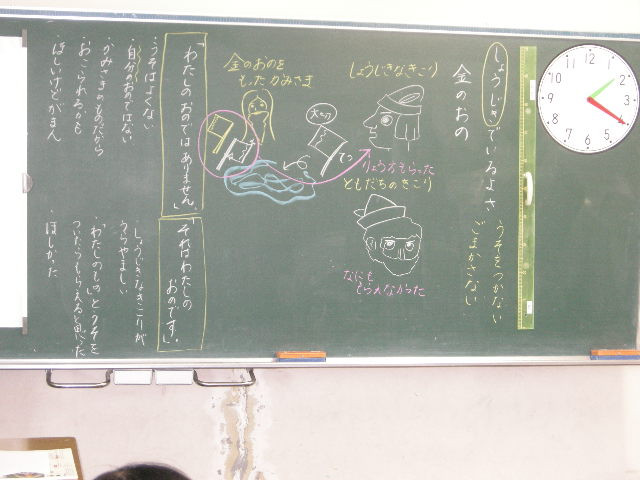 しょうじきでいるよさ
うそをつかない
ごまかさない
金のおの
しょうじきなきこり
りょう方もらった
ともだちのきこり
なにも
もらえなかった
金のおのを
もったかみさま
「わたしのおのではありません。」
うそはよくない
・自分のおのではない
・かみさまのものだから
・おこられるかも
・ほしいけどがまん
「それはわたしの
おのです。」
・しょうじきなきこりが
うらやましい
・「わたしのもの」とウソを
ついたらもらえると思った
・ほしかった
12
1
2
3
4
5
6
7
8
9
10
11